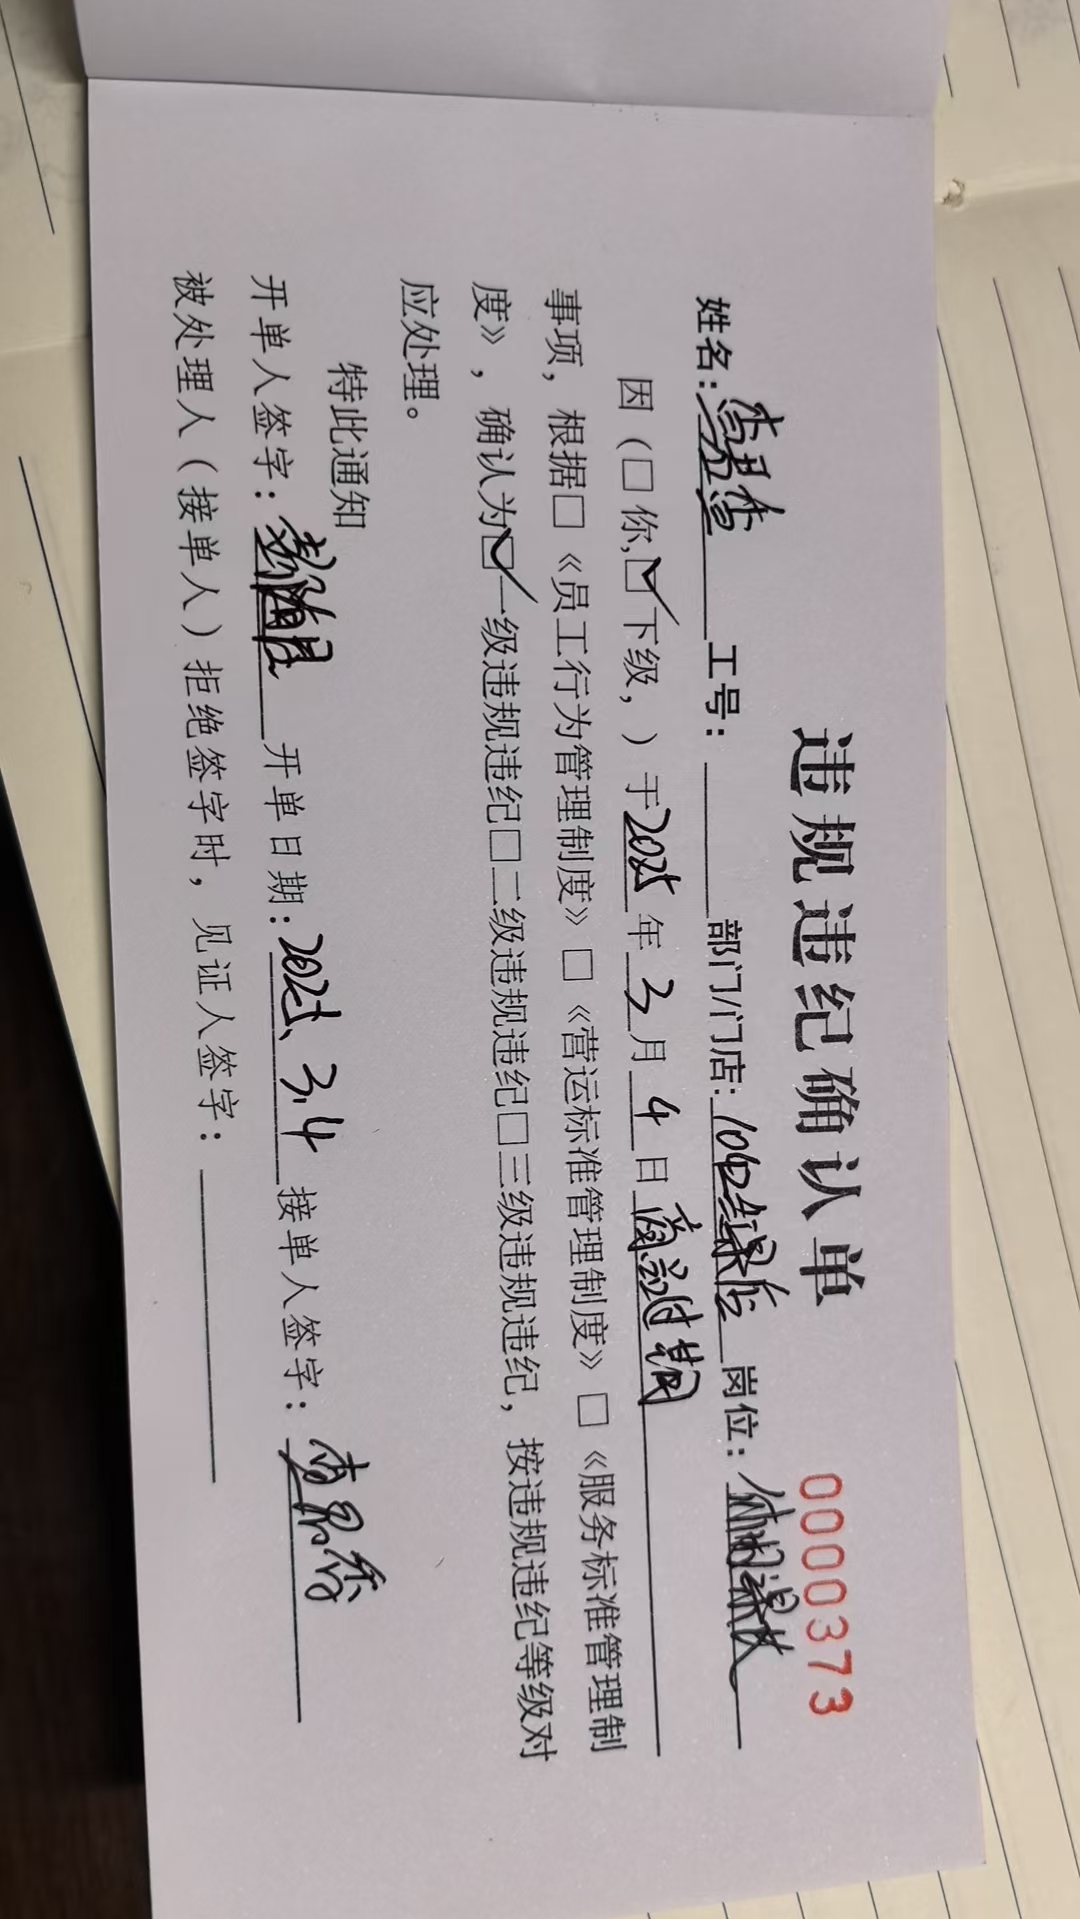 违规违纪确认单 0000373
姓名: 工号: 部门/门店: 岗位:
因（□你,☑下级，）于2025年3月4日商品过期
事项，根据□《员工行为管理制度》□《营运标准管理制度》□《服务标准管理制
度》，确认为☑一级违规违纪□二级违规违纪□三级违规违纪，按违规违纪等级对
应处理。
特此通知
开单人签字: 开单日期:2025、3.4 接单人签字:
被处理人（接单人）拒绝签字时，见证人签字: